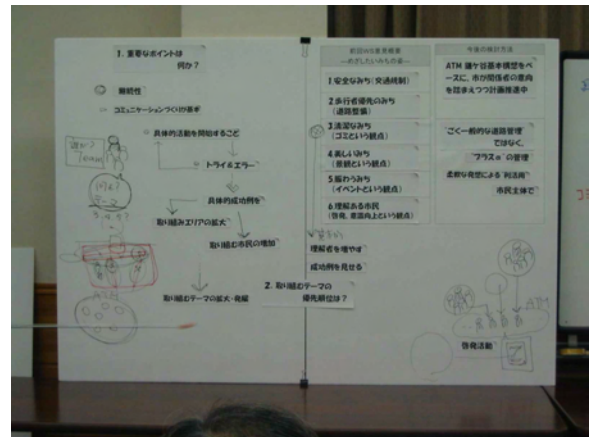 1. 重要なポイントは
何か？
継続性
コミュニケーションづくりが基本
具体的活動を開始すること
トライ＆エラー
具体的成功例を
取り組みエリアの拡大
取り組む市民の増加
取り組むテーマの拡大・発展
誰が？
Team
何を？
テーマ
ATM
前回WS意見概要
―めざしたいみちの姿―
1.安全なみち（交通規制）
2.歩行者優先のみち
（道路整備）
3.清潔なみち
（ゴミという観点）
4.美しいみち
（景観という観点）
5.賑わうみち
（イベントという観点）
6.理解ある市民
（啓発、意識向上という観点）
理解者を増やす
成功例を見せる
2. 取り組むテーマの
優先順位は？
今後の検討方法
ATM 鎌ケ谷基本構想をベ
ースに、市が関係者の意向
を踏まえつつ計画推進中
"ごく一般的な道路管理"
ではなく、
"プラスα"の管理
柔軟な発想による"利活用"
市民主体で
ATM
啓発活動